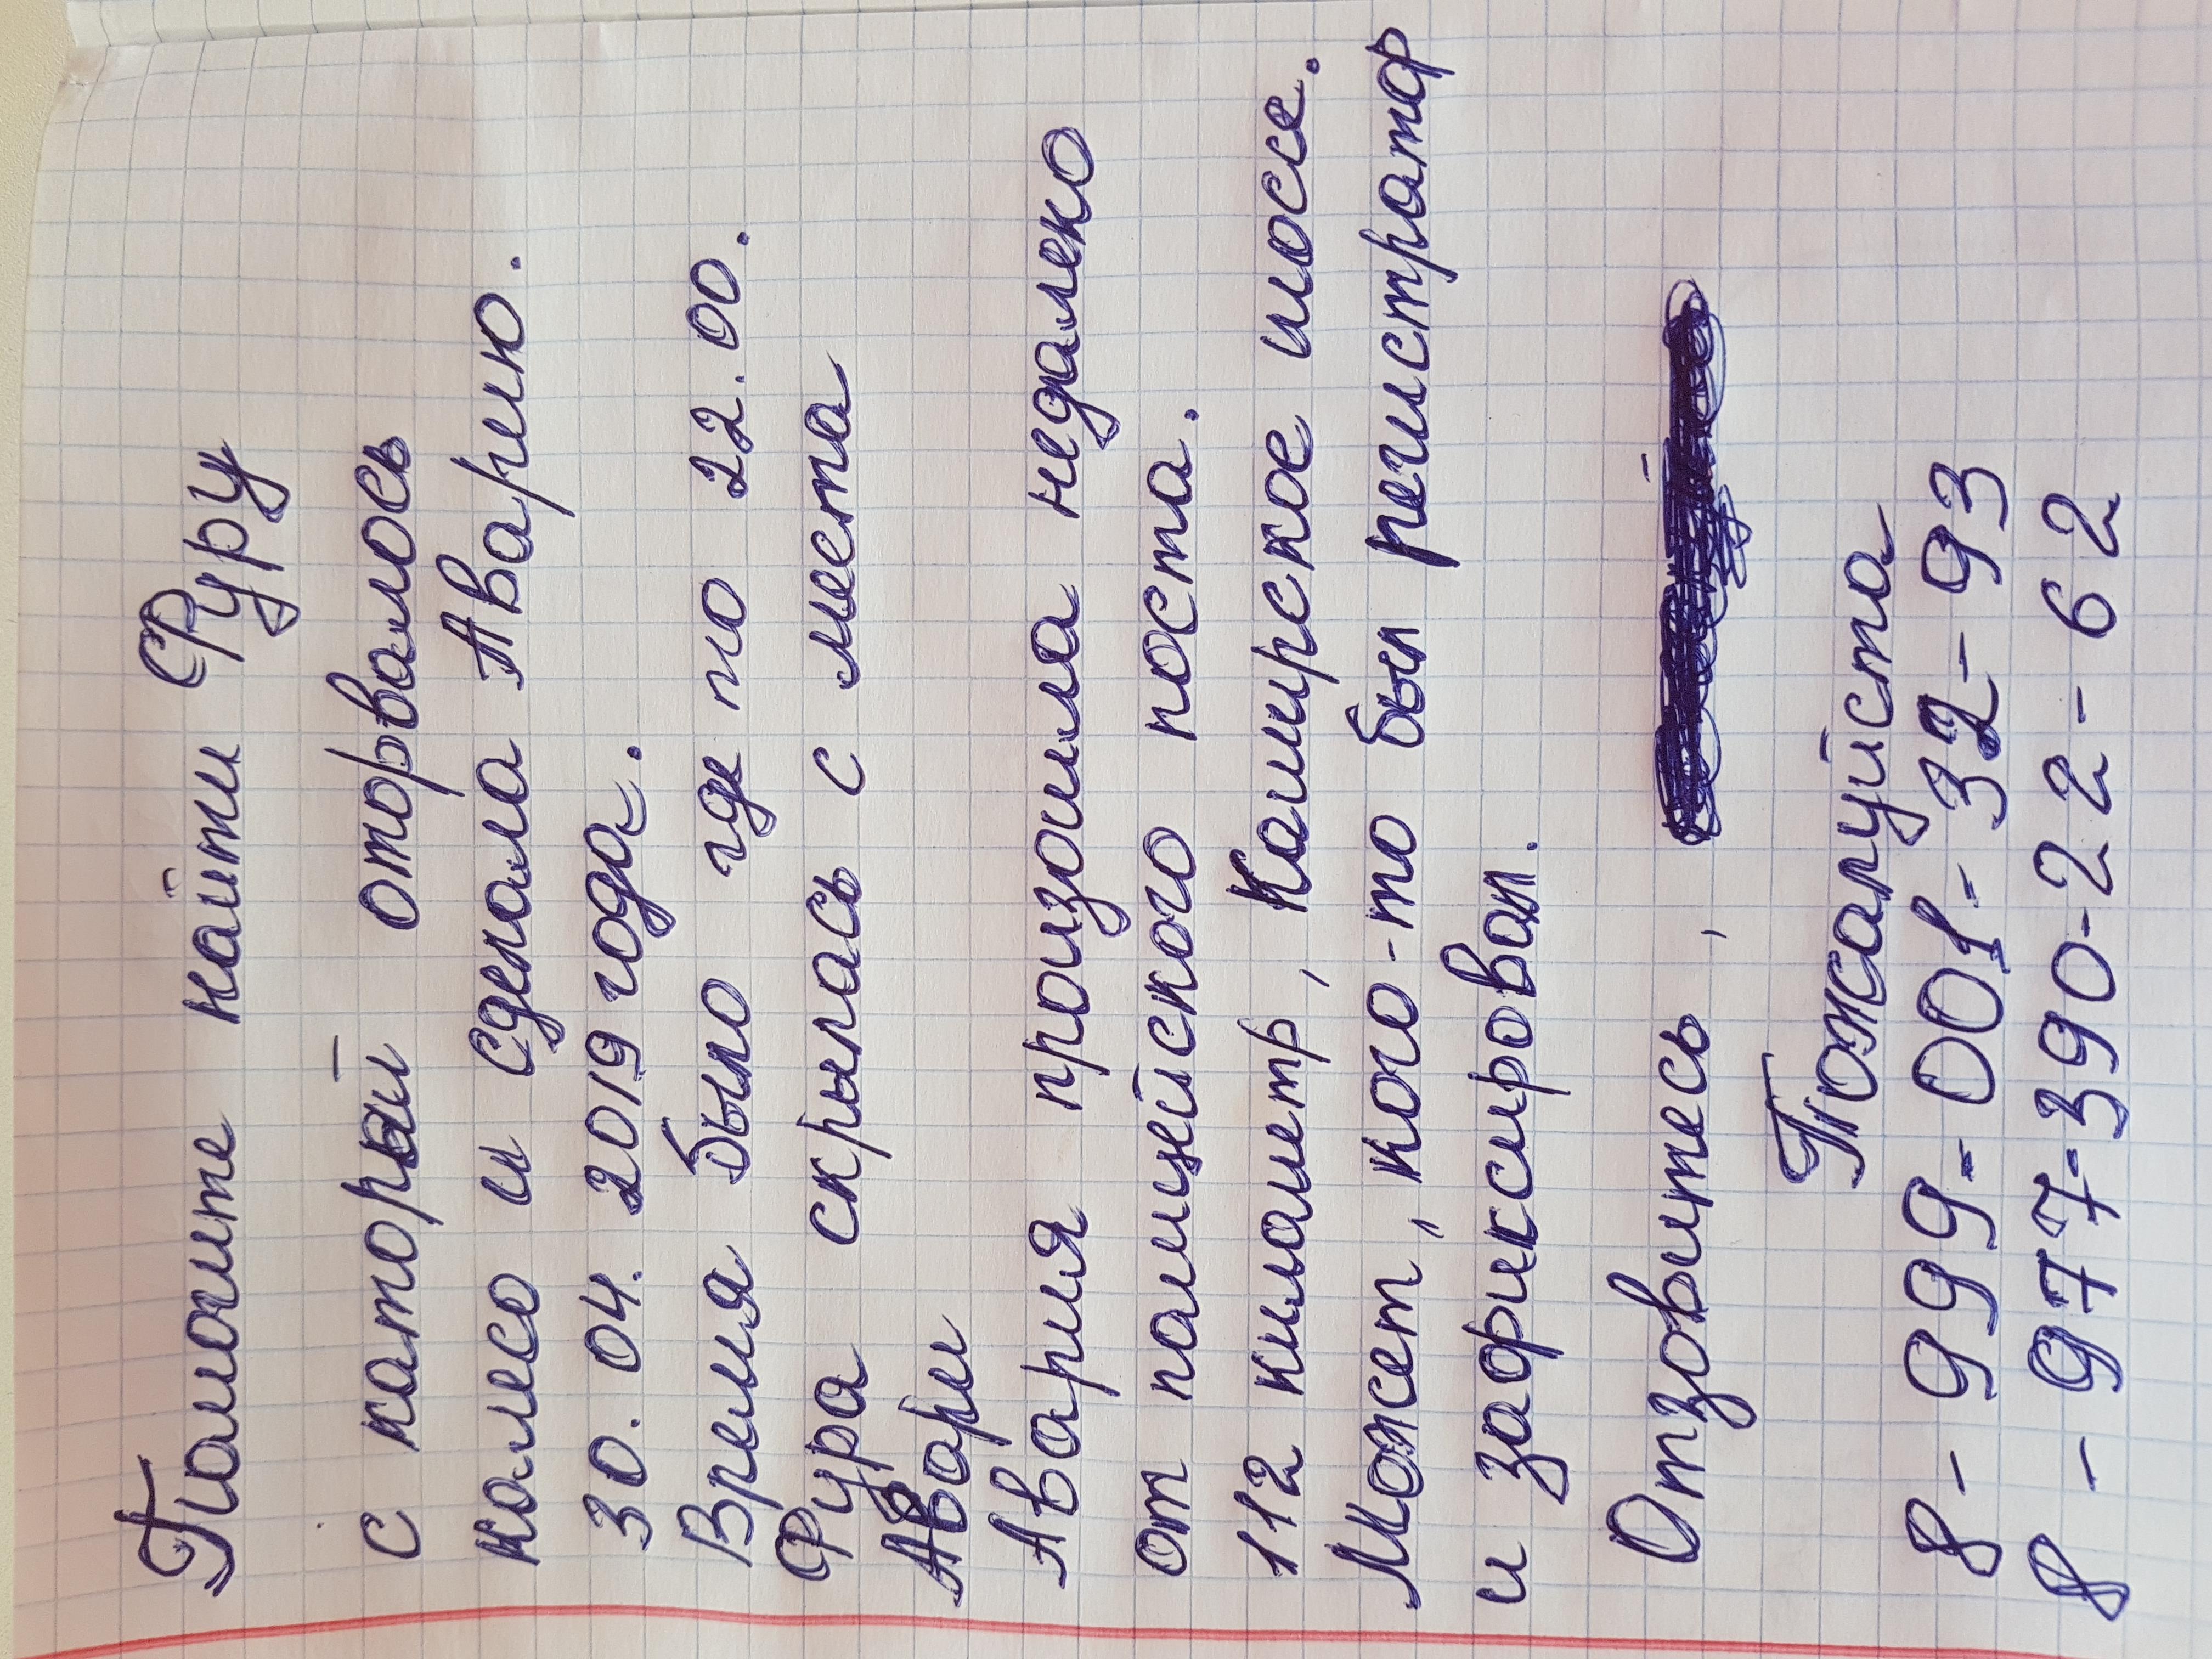 Помогите найти Фуру
с каторый оторвалось
колесо и сделала Аварию.
30.04.2019 года.
Время было где то 22.00.
Фура скрылась с места
Авари
Авария произошла недалеко
от палицейского поста.
112 километр, Каширское шоссе.
Может, кого-то был регистратор
и зафиксировал.
Отзовитесь,
Пожалуйста
8-999-001-32-93
8-977-390-22-62